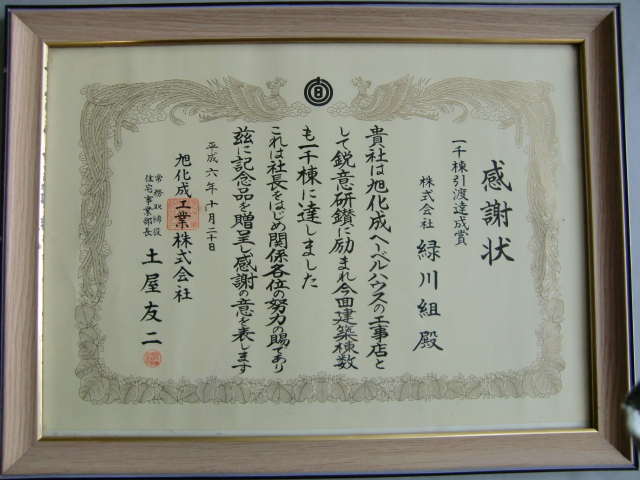 感謝状
一千棟引渡達成賞
株式会社 緑川組 殿
貴社は旭化成ヘーベルハウスの工事店と
して鋭意研鑽に励まれ今回建築棟数
も一千棟に達しました
これは社長をはじめ関係各位の努力の賜であり
茲に記念品を贈呈し感謝の意を表します
平成六年十月二十日
旭化成工業株式会社
常務取締役
住宅事業部長
土屋友二